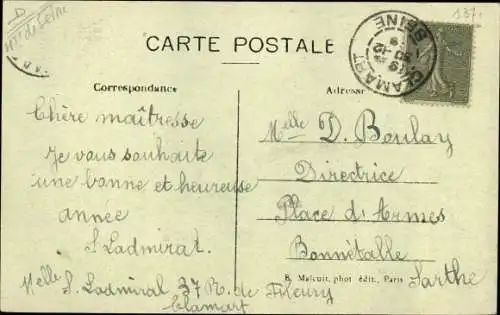 D
137
CARTE POSTALE
CLAMART
SEINE
Correspondance
Adresse
Chère maîtresse
Je vous souhaite
une bonne et heureuse
année
S. Ladmiral.
Melle D. Boulay
Directrice
Place d'Armes
Bonnétable
Sarthe
E. Malcuit, phot. édit., Paris
Melle S. Ladmiral 37 R. de Fleury
Clamart